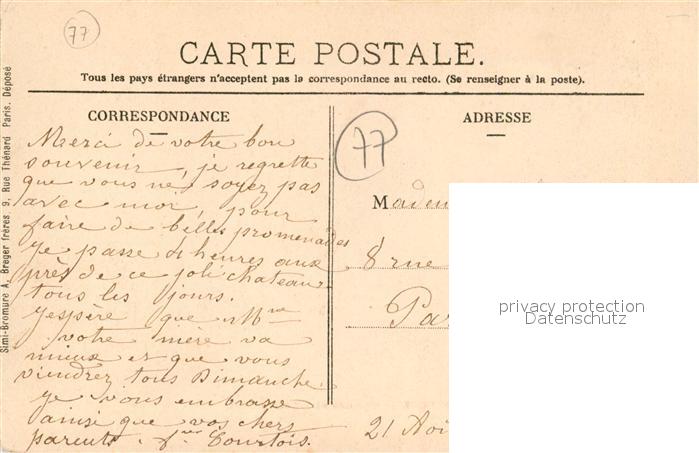 77
CARTE POSTALE.
Tous les pays étrangers n'acceptent pas la correspondance au recto. (Se renseigner à la poste).
CORRESPONDANCE
ADRESSE
77
Simi-Bromure A. Breger frères, 9, Rue Thénard Paris. Déposé
Merci de votre bon
souvenir, je regrette
que vous ne soyez pas
avec moi pour
faire de belles promenades
je passe 4 heures aux
près de ce joli chateau
tous les jours.
J'espère que Mme
votre mère va
mieux et que vous
viendrez tous Dimanche
je vous embrasse
ainsi que vos chers
parents. Courtois.
Madem
8 rue
Pa
21 Aoi
privacy protection
Datenschutz